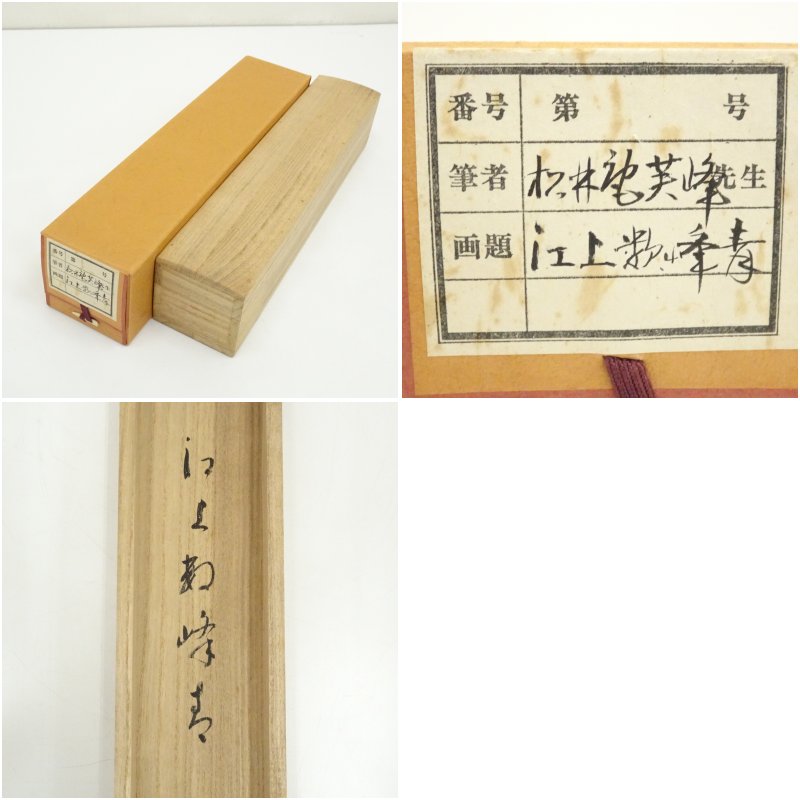 番号 第 号
筆者 松井芙峰
画題 江上数峰青
番号 第 号
筆者 松井芙峰先生
画題 江上数峰青
江上数峰青